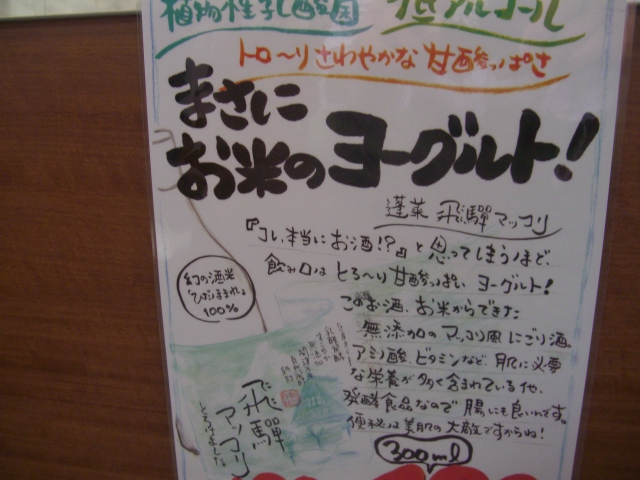 植物性乳酸菌
低アルコール
トロ～りさわやかな甘酸っぱさ
まさに
お米のヨーグルト！
蓬莱 飛騨マッコリ
『コレ、本当にお酒！？』と思ってしまうほど、
飲み口はとろ～り甘酸っぱい ヨーグルト！
このお酒、お米からできた
無添加のマッコリ風にごり酒
アミノ酸、ビタミンなど、肌に必要
な栄養が多く含まれている他、
発酵食品なので腸にも良いんです。
便秘は美肌の大敵ですからね！
300ml
幻の酒米
「ひだほまれ」
100%
飛騨
マッコリ